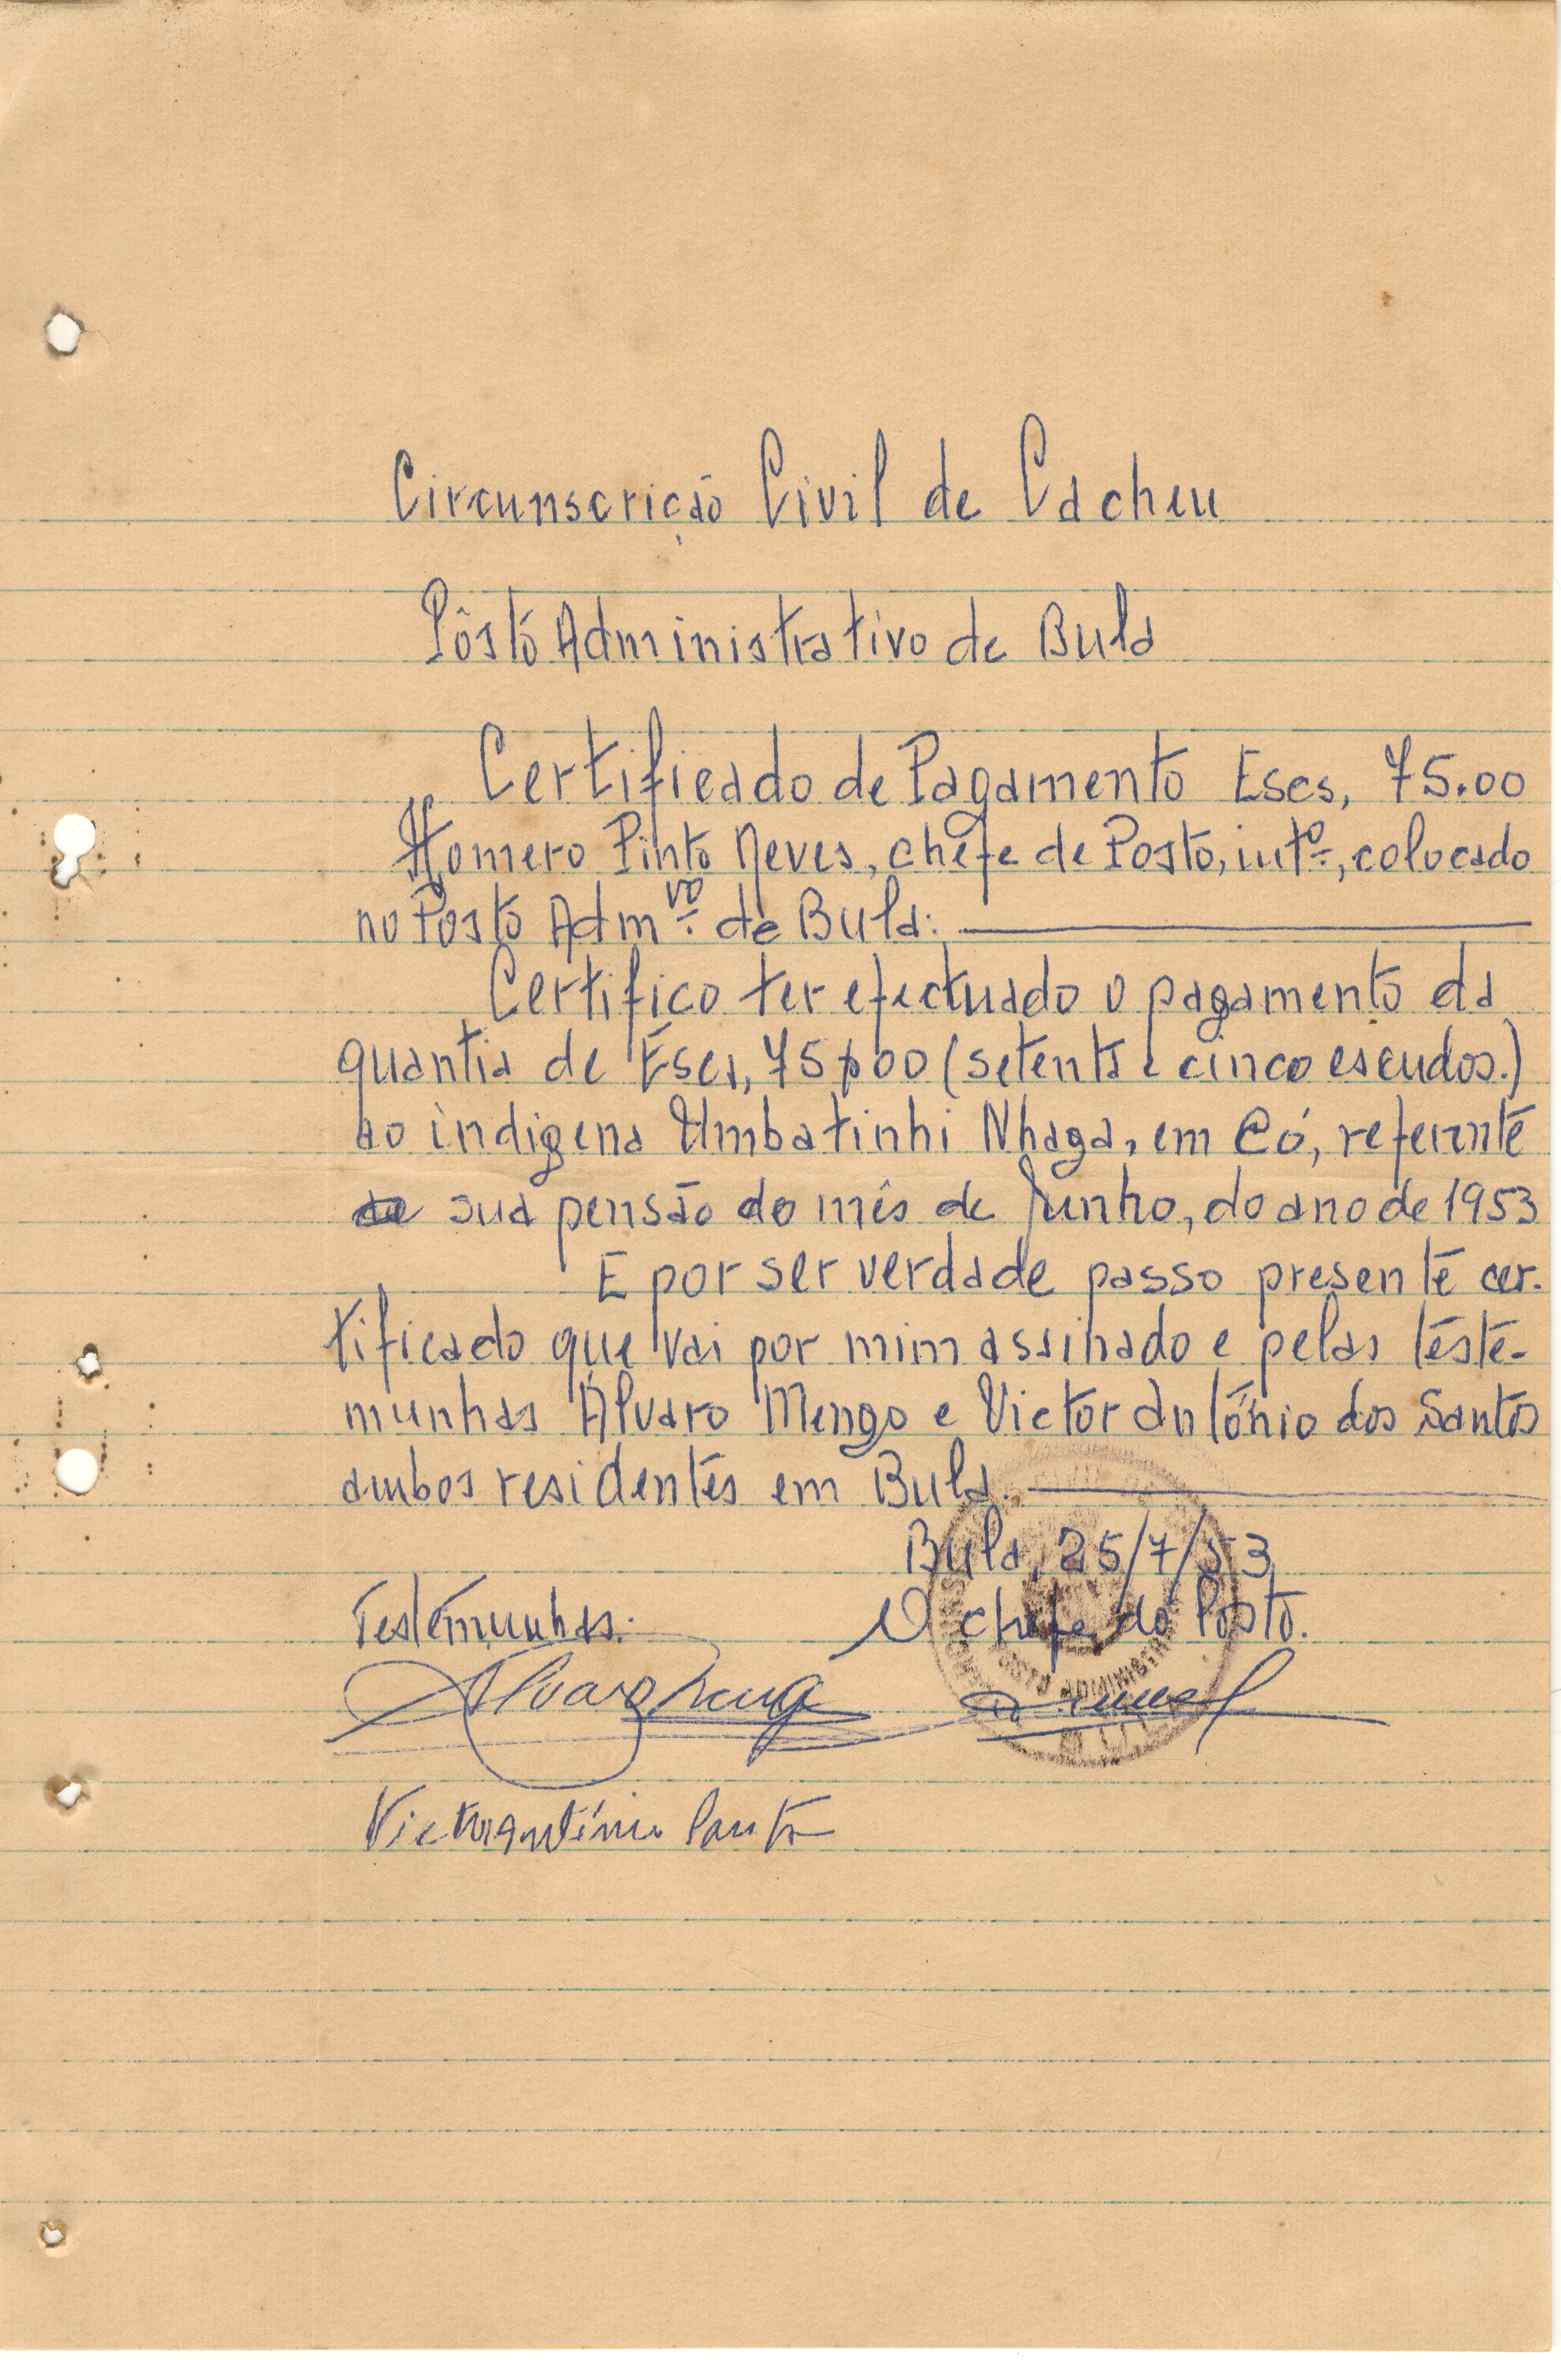 Circunscrição Civil de Cacheu
Pôsto Administrativo de Bula
Certificado de Pagamento Escs, 75.00
Homero Pinto Neves, chefe de Posto, intº., colocado
no Posto Admvº. de Bula:
Certifico ter efectuado o pagamento da
quantia de Escs, 75$00 (setenta e cinco escudos.)
ao indigena Umbatinhi Nhaga, em Có, referente
sua pensão do mês de Junho, do ano de 1953
E por ser verdade passo presente cer-
tificado que vai por mim assinado e pelas teste-
munhas Álvaro Mengo e Victor António dos Santos
ambos residentes em Bula.
Bula, 25/7/53
Testemunhas: O chefe do Posto.
Alvaro
POSTO ADMINISTRA
BULA
Victor António Santos